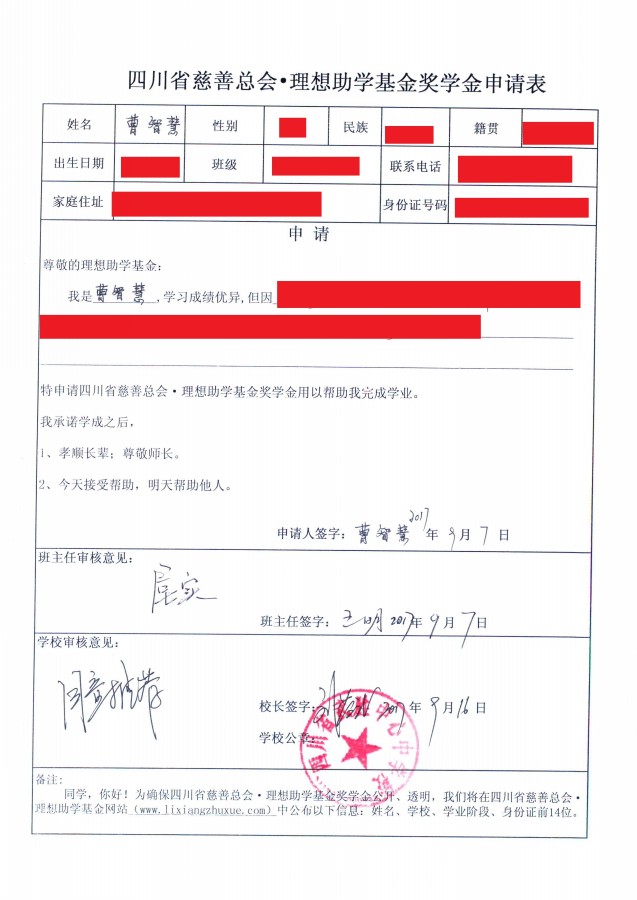 四川省慈善总会•理想助学基金奖学金申请表
姓名 曹智慧 性别 民族 籍贯
出生日期 班级 联系电话
家庭住址 身份证号码
申 请
尊敬的理想助学基金：
我是曹智慧,学习成绩优异,但因
特申请四川省慈善总会•理想助学基金奖学金用以帮助我完成学业。
我承诺学成之后，
1、孝顺长辈；尊敬师长。
2、今天接受帮助，明天帮助他人。
申请人签字：曹智慧 2017年 9月 7日
班主任审核意见：
属实
班主任签字： 2017年 9月 7日
学校审核意见：
同意推荐
校长签字： 2017年 9月 16日
学校公章：
备注:
同学，你好！为确保四川省慈善总会•理想助学基金奖学金公开、透明，我们将在四川省慈善总会•
理想助学基金网站（www.lixiangzhuxue.com）中公布以下信息：姓名、学校、学业阶段、身份证前14位。